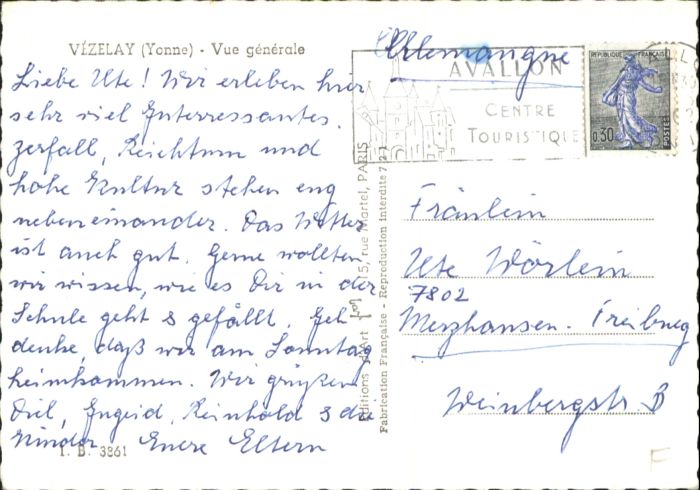 VÉZELAY (Yonne) - Vue générale
Liebe Ute! Wir erleben hier
sehr viel Interressantes.
Zerfall, Reichtum und
hohe Kultur stehen eng
nebeneinander. Das Wetter
ist auch gut. Gerne wollten
wir wissen, wie es Dir in der
Schule geht & gefällt. Ich
denke, daß wir am Sonntag
heimkommen. Wir grüßen
Dich, Ingrid, Reinhold & die
Kinder. Euere Eltern
I. B. 3861
Éditions d'Art 15, rue Martel, PARIS
Fabrication Française - Reproduction Interdite
Allemagne
AVALLON
CENTRE
TOURISTIQUE
REPUBLIQUE FRANÇAISE
0,30
POSTES
Fräulein
Ute Wörlein
7802
Merzhausen-Freiburg
Weinbergstr. 3
F